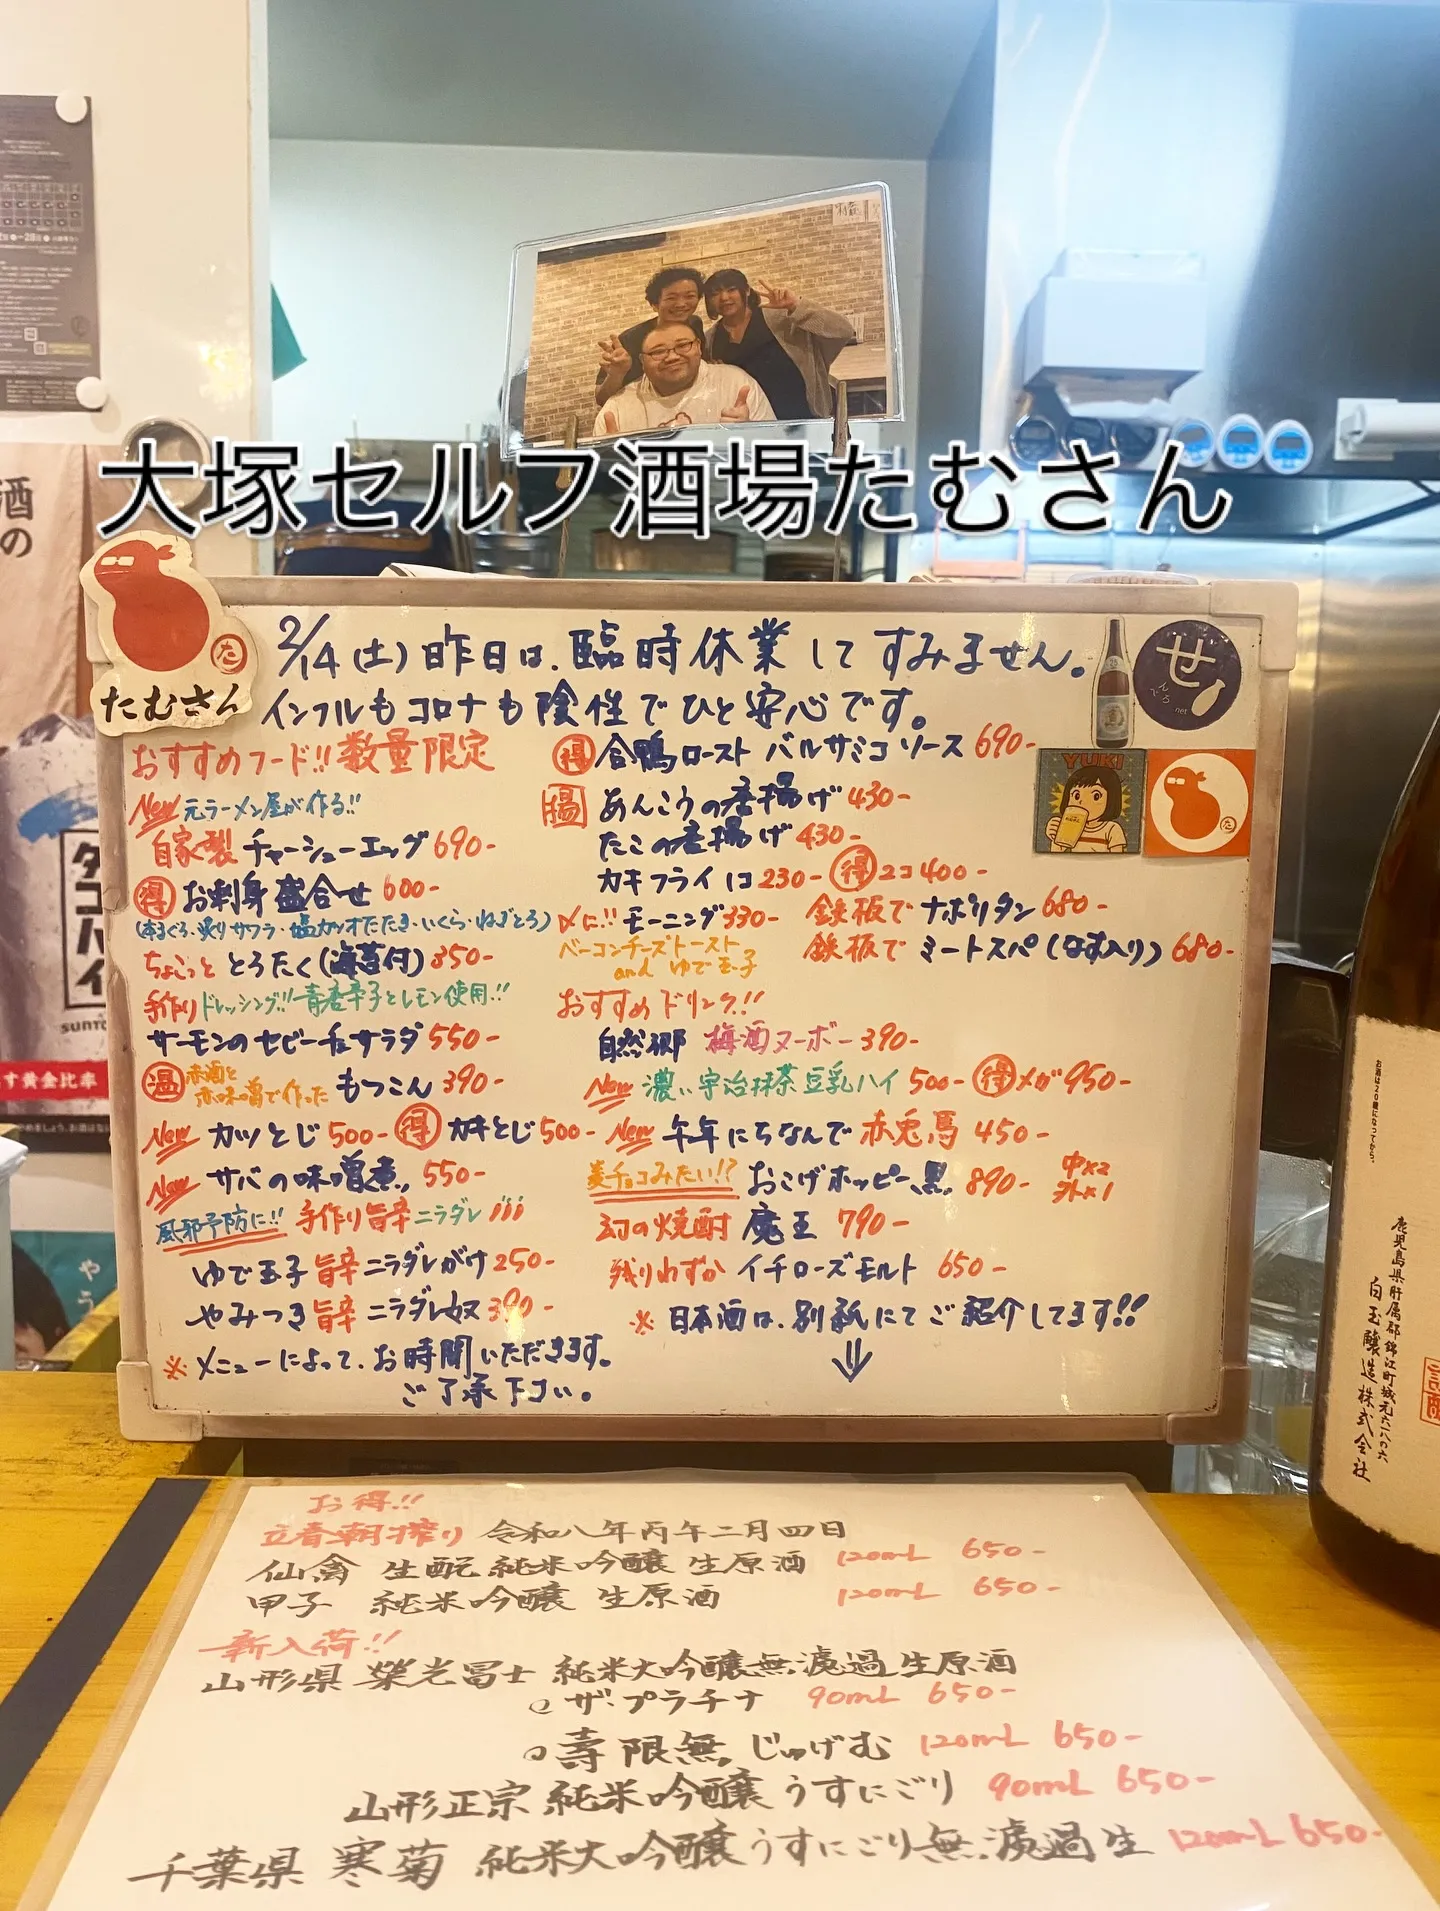 大塚セルフ酒場たむさん
酒の
たむさん
2/14(土)昨日は、臨時休業してすみません。
インフルもコロナも陰性でひと安心です。
せ
んべろ
.net
YUKI
おすすめフード!!数量限定
New 元ラーメン屋が作る!!
自家製チャーシューエッグ690-
得 お刺身盛合せ 600-
(本まぐろ・炙りサワラ・塩カツオたたき・いくら・ねぎとろ)
ちょこっと とろたく(海苔付)350-
手作りドレッシング!!青唐辛子とレモン使用!!
サーモンのセビーチェサラダ 550-
温 赤酒と赤味噌で作った もつこん 390-
New カツとじ500- 得 カキとじ500-
New サバの味噌煮 550-
風邪予防に!! 手作り旨辛ニラダレ
ゆで玉子旨辛ニラダレがけ250-
やみつき旨辛ニラダレ奴390-
※メニューによって、お時間いただきます。
ご了承下さい。
得 合鴨ローストバルサミコソース 690-
揚 あんこうの唐揚げ430-
たこの唐揚げ430-
カキフライ1コ230- 得 2コ400-
〆に!!モーニング330-
ベーコンチーズトースト
and ゆで玉子
鉄板でナポリタン680-
鉄板でミートスパ(なす入り)680-
おすすめドリンク!!
自然郷 梅酒ヌーボー390-
New 濃い宇治抹茶豆乳ハイ 500- 得 メガ950-
New 午年にちなんで赤兎馬 450-
美チョコみたい!? おこげホッピー黒 890- 中×2
外×1
幻の焼酎 魔王 790-
残りわずか イチローズモルト 650-
※日本酒は、別紙にてご紹介してます!!
お得!!
立春朝搾り 令和八年丙午二月四日
仙禽 生酛純米吟醸 生原酒 120mL 650-
甲子 純米吟醸 生原酒 120mL 650-
新入荷!!
山形県 榮光冨士 純米大吟醸無濾過生原酒
ザ・プラチナ 90mL 650-
壽限無 じゅげむ 120mL 650-
山形正宗 純米吟醸うすにごり 90mL 650-
千葉県 寒菊 純米大吟醸うすにごり無濾過生 120mL 650-
タコハイ
す黄金比率
お酒は20歳になってから。
鹿児島県肝属郡錦江町城元六一八の六
白玉醸造株式会社